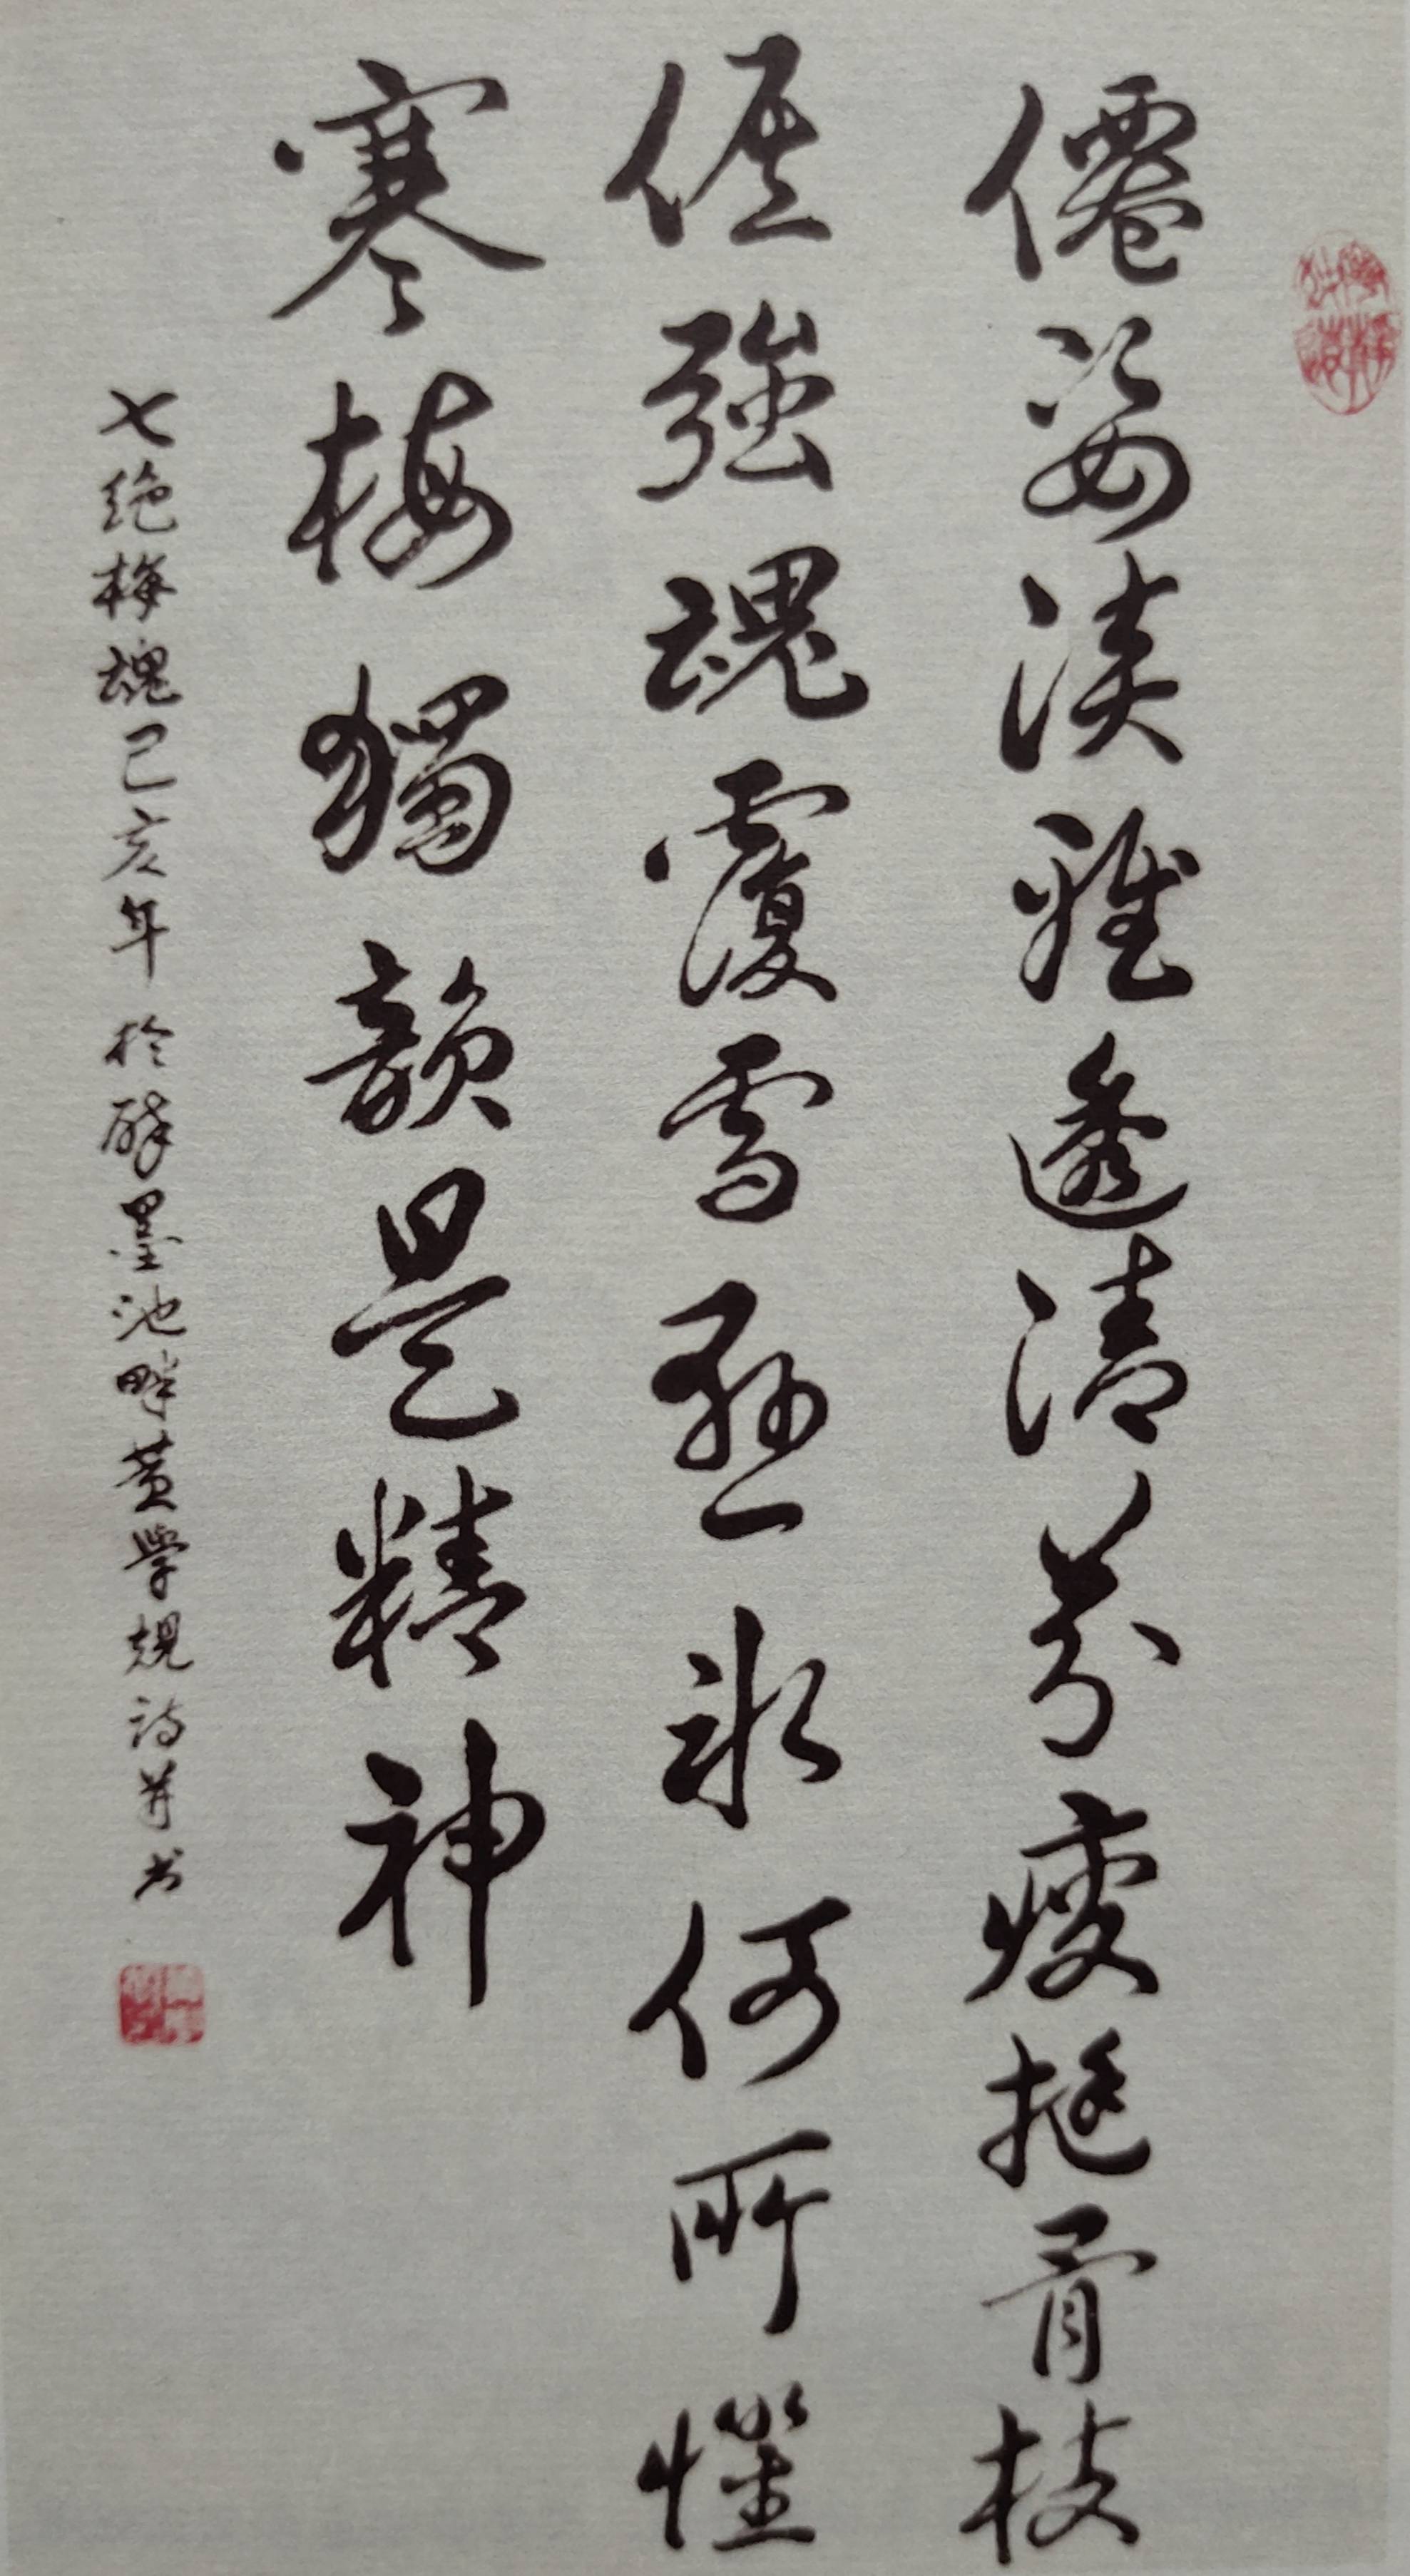 僊姿淡雅透清芬瘦挺骨枝
倔強魂覆雪壓冰何所懼
寒梅獨韻是精神
七绝梅魂己亥年於醉墨池畔黄學規诗并书